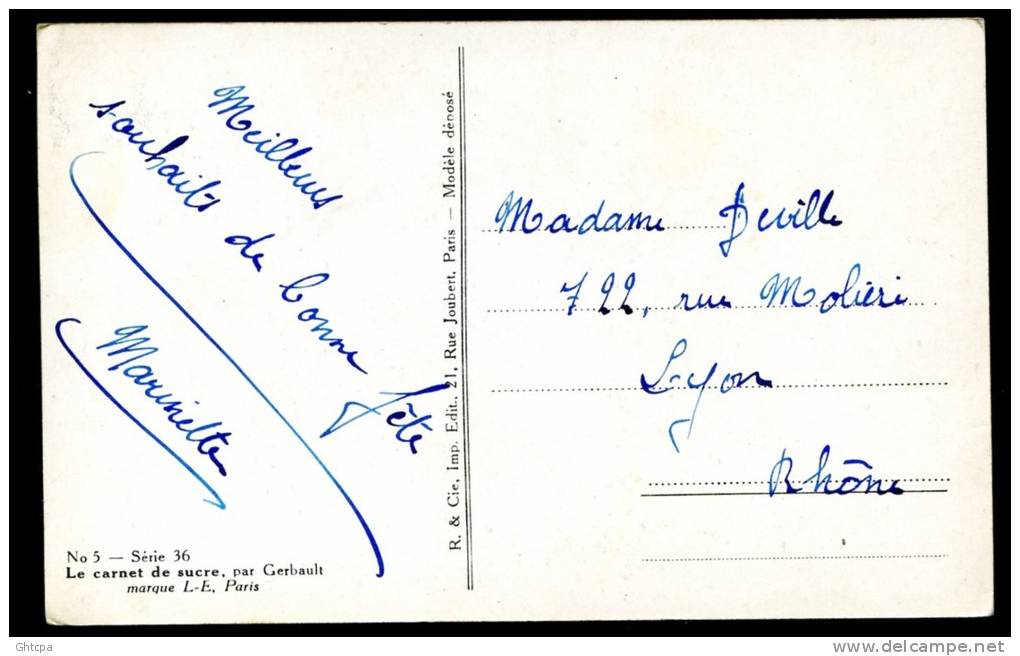 Meilleurs
souhaits
de bonne fête
Marinette
No 5 — Série 36
Le carnet de sucre, par Gerbault
marque L-E, Paris
R. & Cie, Imp. Edit., 21, Rue Joubert, Paris — Modèle déposé
Madame Deville
722, rue Molière
Lyon
Rhône
Ghtcpa
delcampe.net